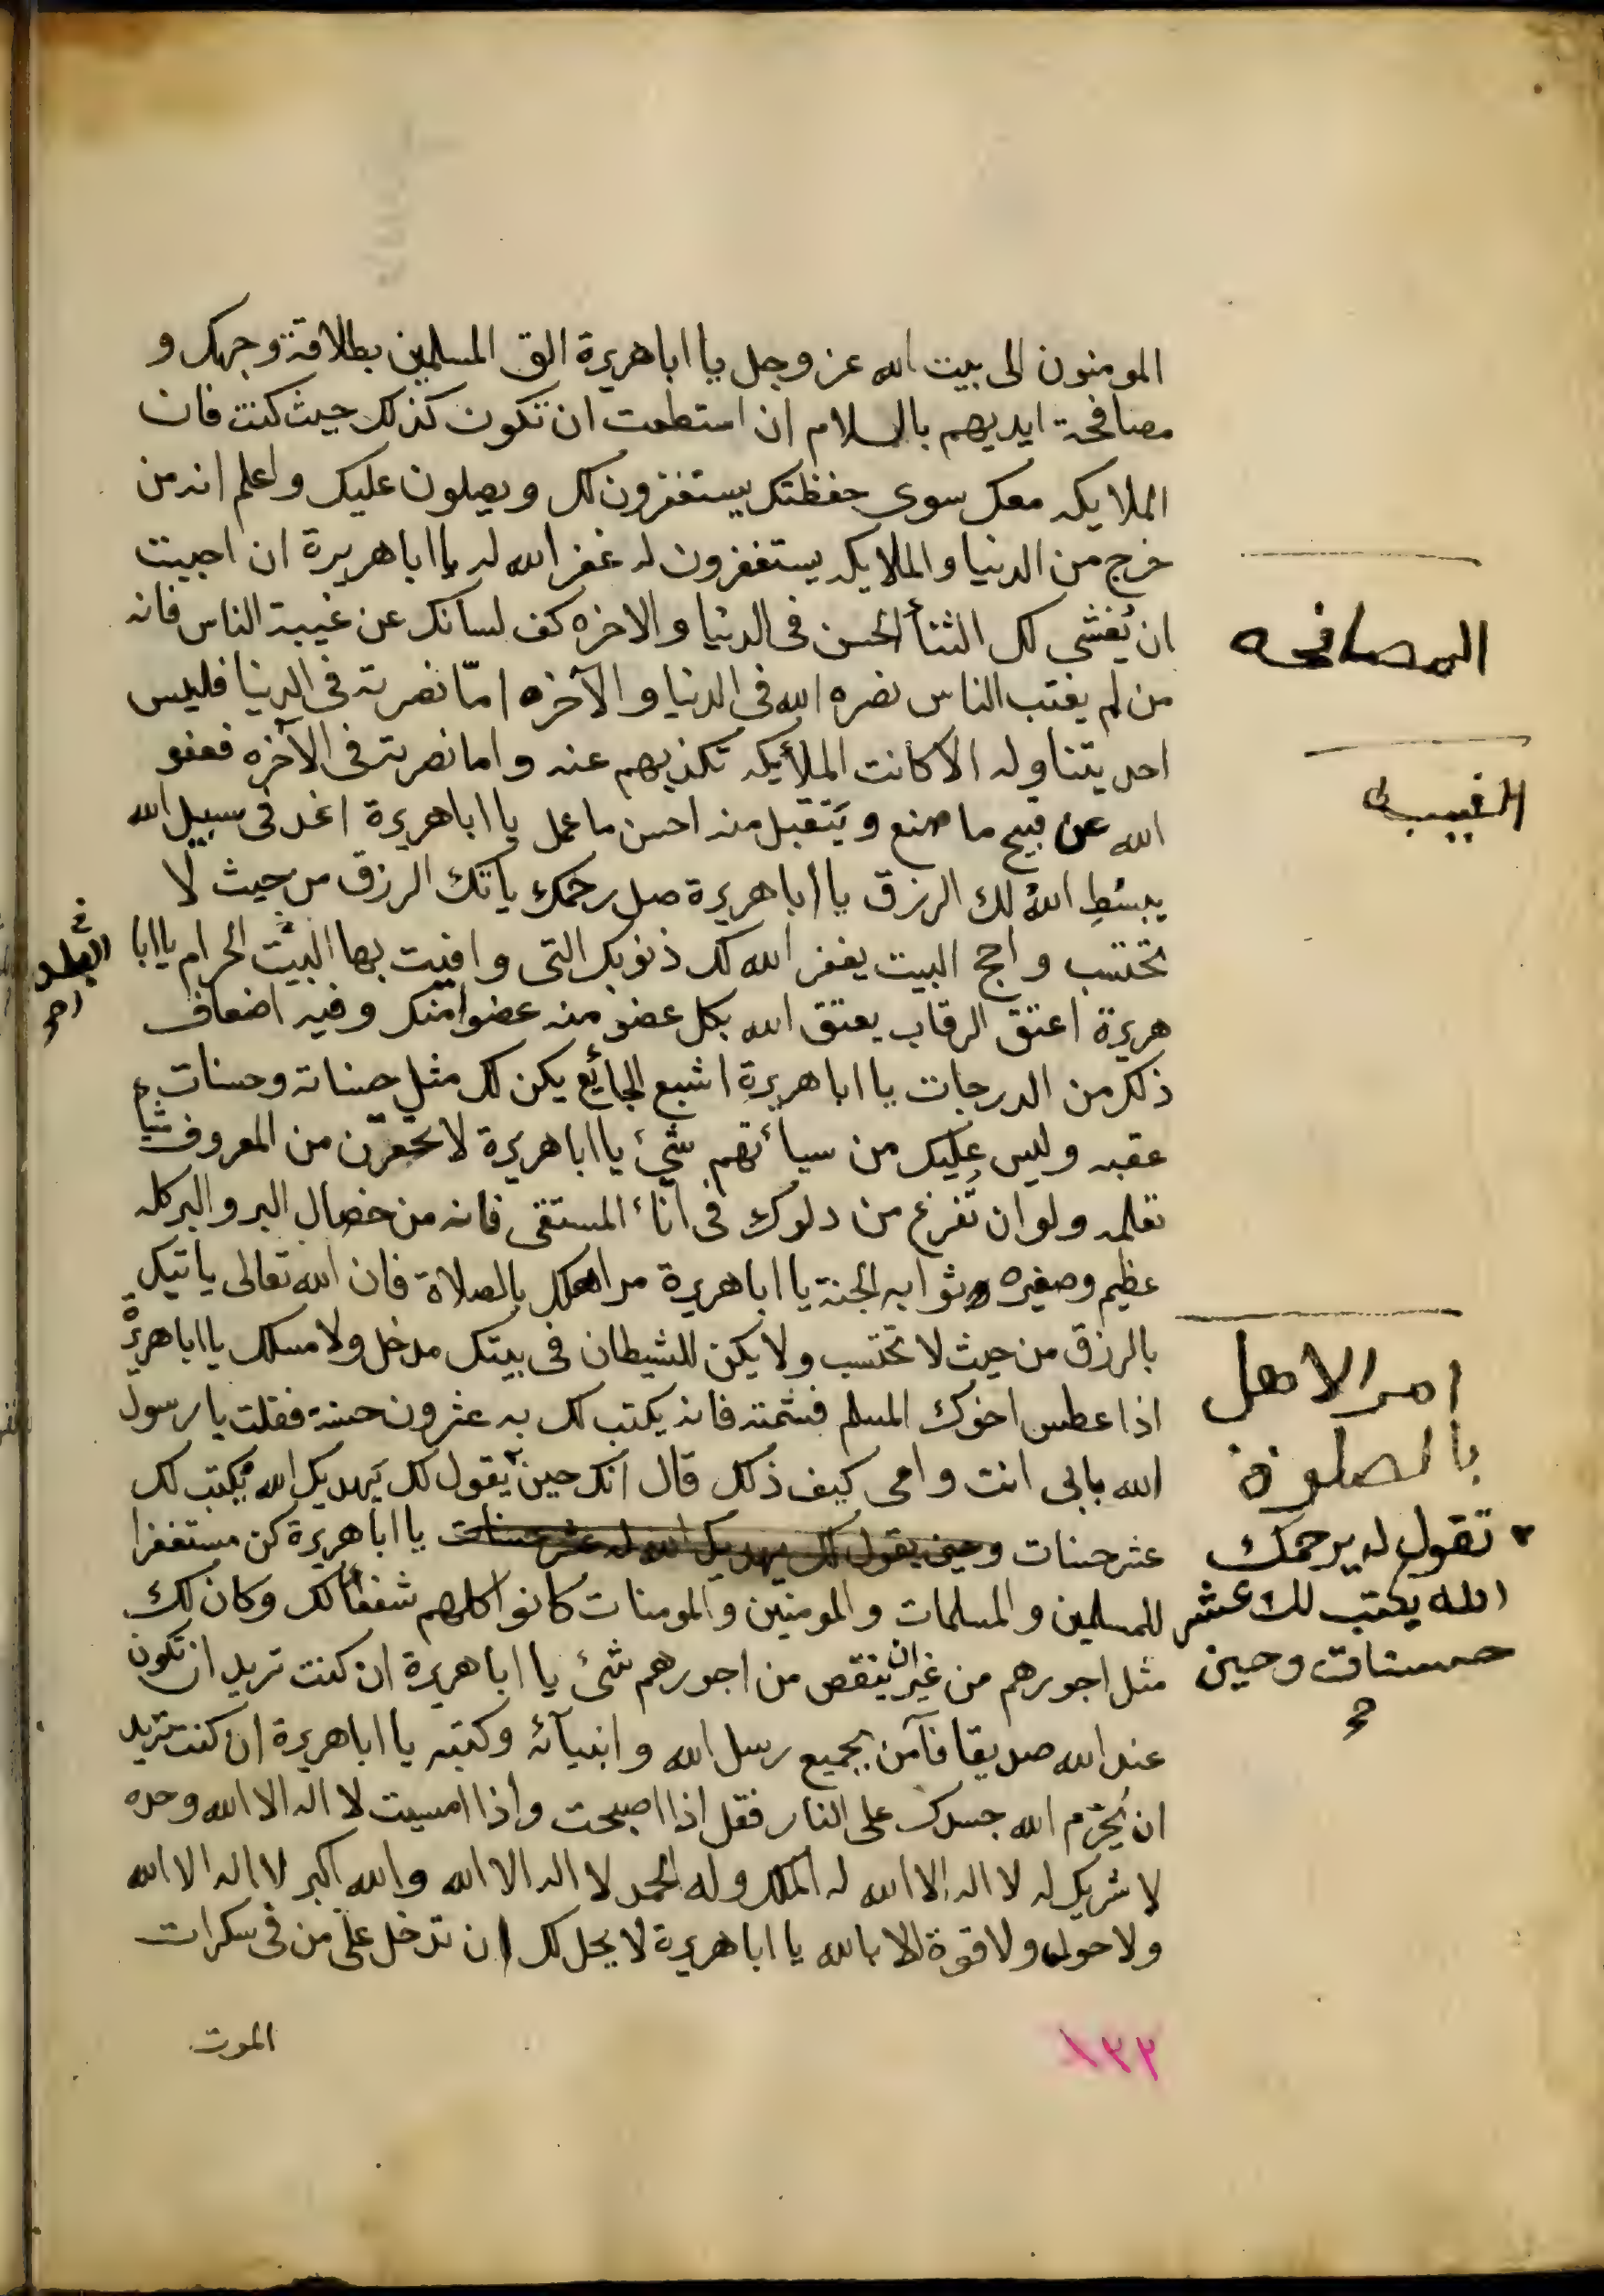 المومنون الى بيت الله عز وجل يا ابا هريرة الق المسلمين بطلاقة وجهك و
مصافحة ايديهم بالسلام ان استطعت ان تكون كذلك حيث كنت فان
الملايكه معك سوى حفظتك يستغفرون لك ويصلون عليك واعلم انه من
خرج من الدنيا والملايكه يستغفرون له غفر الله له يا ابا هريرة ان احببت
ان يُفشى لك الثنأ الحسن فى الدنيا والاخره كف لسانك عن غيبة الناس فانه
من لم يغتب الناس نصره الله فى الدنيا والآخره امّا نصرته فى الدنيا فليس
احد يتناوله الا كانت الملأيكه تكذبهم عنه واما نصرته فى الآخره فعفو
الله عن قبيح ما صنع ويتقبل منه احسن ما عمل يا ابا هريرة اغد فى سبيل الله
يبسُطِ اللهُ لك الرزق يا ابا هريرة صل رحمك ياتك الرزق من حيث لا
تحتسب واحج البيت يغفر الله لك ذنوبك التى وافيت بها البيت الحرام يا ابا
هريرة اعتق الرقاب يعتق الله بكل عضو منه عضوا منك وفيه اضعاف
ذلك من الدرجات يا ابا هريرة اشبع الجائع يكن لك مثل حسناته وحسنات
عقبه وليس عليك من سيأتهم شئ يا ابا هريرة لا تحقرن من المعروف شيأ
تعلمه ولو ان تُفرغ من دلوك فى انأ المستقى فانه من خصال البر والبر كله
عظيم وصغيره وثوابه الجنة يا ابا هريرة مر اهلك بالصلاة فان الله تعالى ياتيك
بالرزق من حيث لا تحتسب ولا يكن للشيطان فى بيتك مدخل ولا مسلك يا ابا هريرة
اذا عطس اخوك المسلم فشمته فانه يكتب لك به عشرون حسنة فقلت يا رسول
الله بابى انت وامى كيف ذلك قال انك حين يقول لك يهديك الله يكتب لك
عشر حسنات وحين يقول لك يهديك الله له عشر حسنات يا ابا هريرة كن مستغفرا
للمسلمين والمسلمات والمومنين والمومنات كانوا كلهم شفعأ لك وكان لك
مثل اجورهم من غير ان ينقص من اجورهم شئ يا ابا هريرة ان كنت تريد ان تكون
عند الله صديقا فآمن بجميع رسل الله وانبيآئه وكتبه يا ابا هريرة ان كنت تريد
ان يُحَرّم الله جسدك على النار فقل اذا اصبحت واذا امسيت لا اله الا الله وحده
لا شريك له لا اله الا الله له الملك وله الحمد لا اله الا الله والله اكبر لا اله الا الله
ولا حول ولا قوة الا بالله يا ابا هريرة لا يحل لك ان تدخل على من فى سكرات
الموت
١٣٢
المصافحه
الغيبه
امر الاهل
بالصلوة
تقول له يرحمك
الله يكتب لك عشر
حسنات وحين